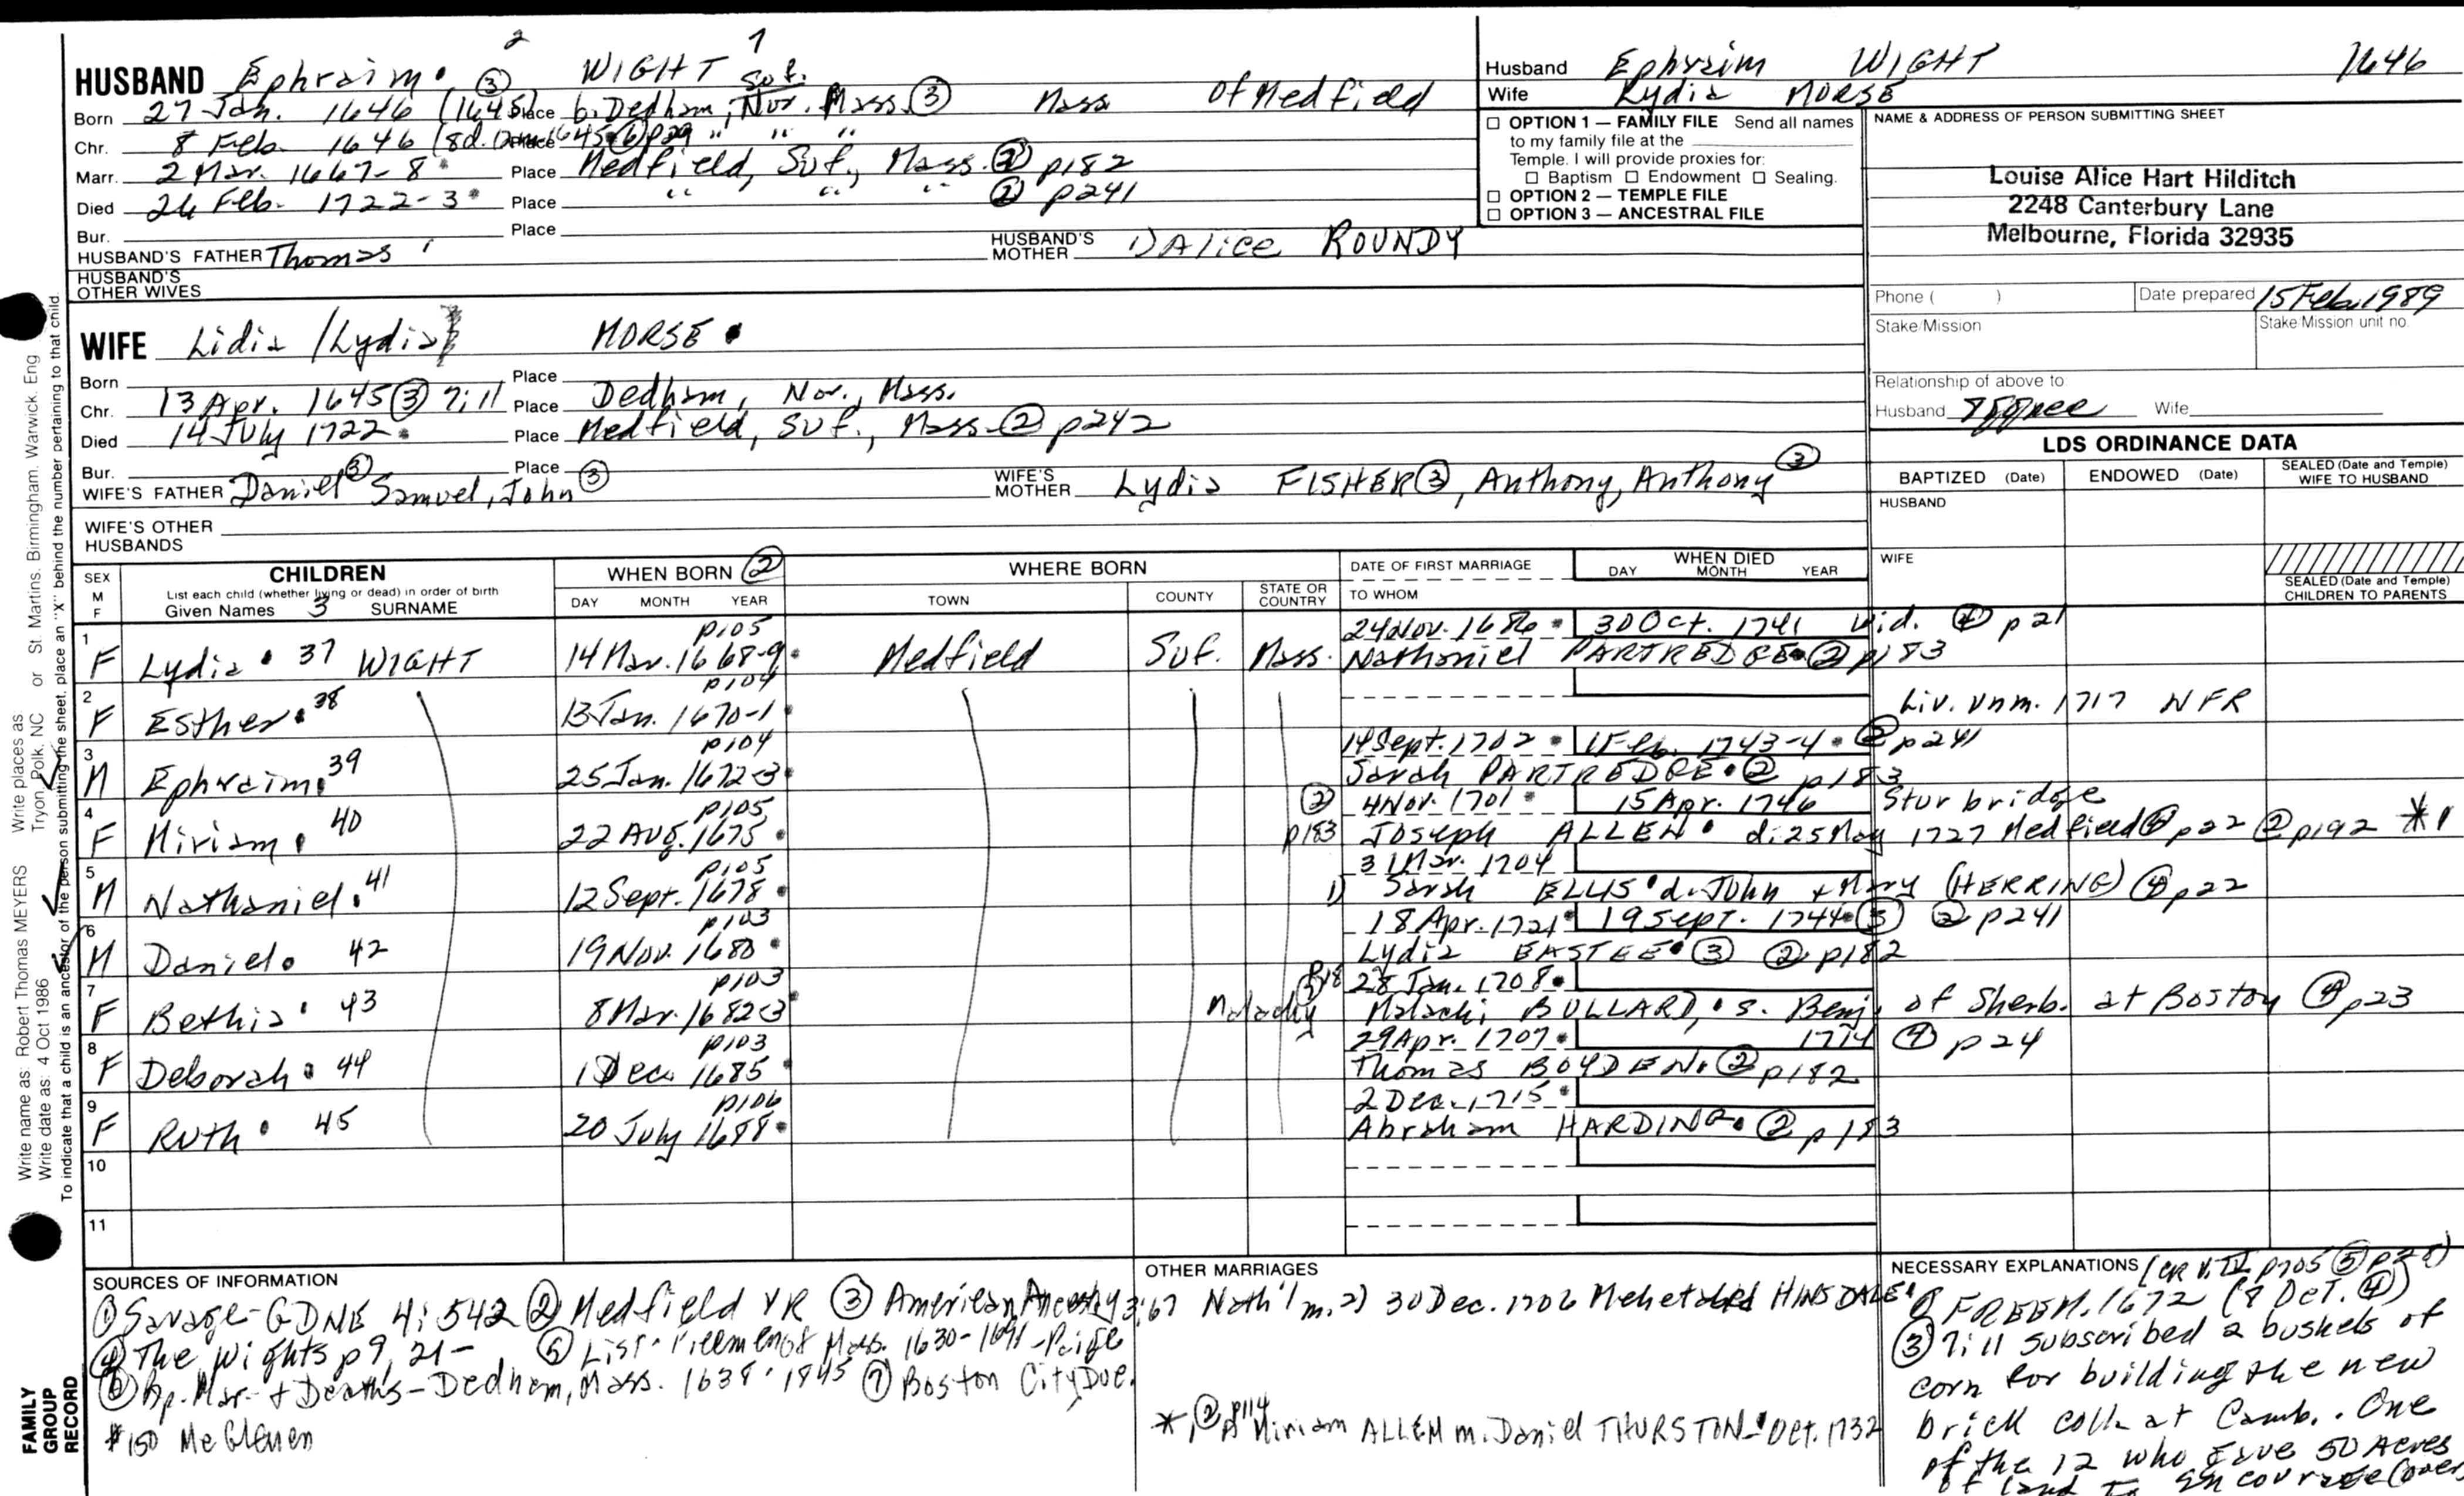 2 1
HUSBAND Ephraim. ③ WIGHT Suf.
Born 27 Jan. 1646 (1645) Place b. Dedham, Nor. Mass. ③ Mass of Medfield
Chr. 8 Feb. 1646 (8d. 12m 1645 ⑥ p29 " " "
Marr. 2 Mar. 1667-8 Place Medfield, Suf., Mass. ② p182
Died 26 Feb. 1722-3 Place " " " ② p241
Bur. Place
HUSBAND'S FATHER Thomas 1 HUSBAND'S MOTHER 1) Alice ROUNDY
HUSBAND'S OTHER WIVES
Husband Ephraim WIGHT 1646
Wife Lydia MORSE
☐ OPTION 1 — FAMILY FILE Send all names
to my family file at the
Temple. I will provide proxies for:
☐ Baptism ☐ Endowment ☐ Sealing.
☐ OPTION 2 — TEMPLE FILE
☐ OPTION 3 — ANCESTRAL FILE
NAME & ADDRESS OF PERSON SUBMITTING SHEET
Louise Alice Hart Hilditch
2248 Canterbury Lane
Melbourne, Florida 32935
Phone ( ) Date prepared 15 Feb. 1989
Stake/Mission Stake/Mission unit no.
Relationship of above to
Husband Wife
WIFE Lidia /Lydia MORSE
Born Place
Chr. 13 Apr. 1645 ③ 7:11 Place Dedham, Nor., Mass.
Died 14 July 1722 Place Medfield, Suf., Mass. ② p242
Bur. Place
WIFE'S FATHER Daniel ③ Samuel, John ③ WIFE'S MOTHER Lydia FISHER ③, Anthony, Anthony ③
WIFE'S OTHER HUSBANDS
LDS ORDINANCE DATA
BAPTIZED (Date) ENDOWED (Date) SEALED (Date and Temple) WIFE TO HUSBAND
HUSBAND
WIFE
SEALED (Date and Temple) CHILDREN TO PARENTS
SEX M F
CHILDREN
List each child (whether living or dead) in order of birth
Given Names 3 SURNAME
WHEN BORN ②
DAY MONTH YEAR
WHERE BORN
TOWN COUNTY STATE OR COUNTRY
DATE OF FIRST MARRIAGE
TO WHOM
WHEN DIED
DAY MONTH YEAR
p105 24 Nov. 1686 30 Oct. 1741 wid. ④ p21
1 F Lydia 37 WIGHT 14 Mar. 1668-9 Medfield Suf. Mass. Nathaniel PARTREDGE ② p183
p104
2 F Esther 38 13 Jan. 1670-1 Liv. unm. 1717 NFR
p104 14 Sept. 1702 1 Feb. 1743-4 ② p241
3 M Ephraim 39 25 Jan. 1672-3 Sarah PARTREDRE ② p183
p105 ② 4 Nov. 1701 15 Apr. 1746 Sturbridge
4 F Miriam 40 22 Aug. 1675 p183 Joseph ALLEN d. 25 May 1727 Medfield ④ p22 ② p192 *1
p105 31 Mar. 1704
5 M Nathaniel 41 12 Sept. 1678 1) Sarah ELLIS d. John + Mary (HERRING) ④ p22
p103 18 Apr. 1721 19 Sept. 1744 ③ ② p241
6 M Daniel 42 19 Nov. 1680 Lydia EASTEE ③ ② p182
p103 28 Jan. 1708
7 F Bethia 43 8 Mar. 1682-3 Malachy Malachi BULLARD, s. Benj. of Sherb. at Boston ④ p23
p103 29 Apr. 1707 1774 ④ p24
8 F Deborah 44 1 Dec. 1685 Thomas BOYDEN ② p182
p106 2 Dec. 1715
9 F Ruth 45 20 July 1688 Abraham HARDING ② p183
10
11
SOURCES OF INFORMATION
① Savage-GDNE 4:542 ② Medfield VR ③ American Ancestry 3:67
④ The Wights p9, 21- ⑤ List-Freemen of Mass. 1630-1691-Paige
⑥ Bp. Mar. + Deaths-Dedham, Mass. 1638-1845 ⑦ Boston City Doc.
#150 McGlenen
OTHER MARRIAGES
Nath'l m. 2) 30 Dec. 1706 Mehetabel HINSDALE
*1 ② p114 Miriam ALLEN m. Daniel THURSTON Oct. 1732
NECESSARY EXPLANATIONS
FREEM. 1672 (9 Oct. ④)
③ 7:11 Subscribed 2 bushels of
corn for building the new
brick coll. at Camb.. One
of the 12 who gave 50 acres
of land to encourage (over)
Write name as: Robert Thomas MEYERS Write places as: Tryon, Polk, NC or St. Martins, Birmingham, Warwick, Eng
Write date as: 4 Oct 1986
To indicate that a child is an ancestor of the person submitting the sheet, place an "X" behind the number pertaining to that child.
FAMILY GROUP RECORD